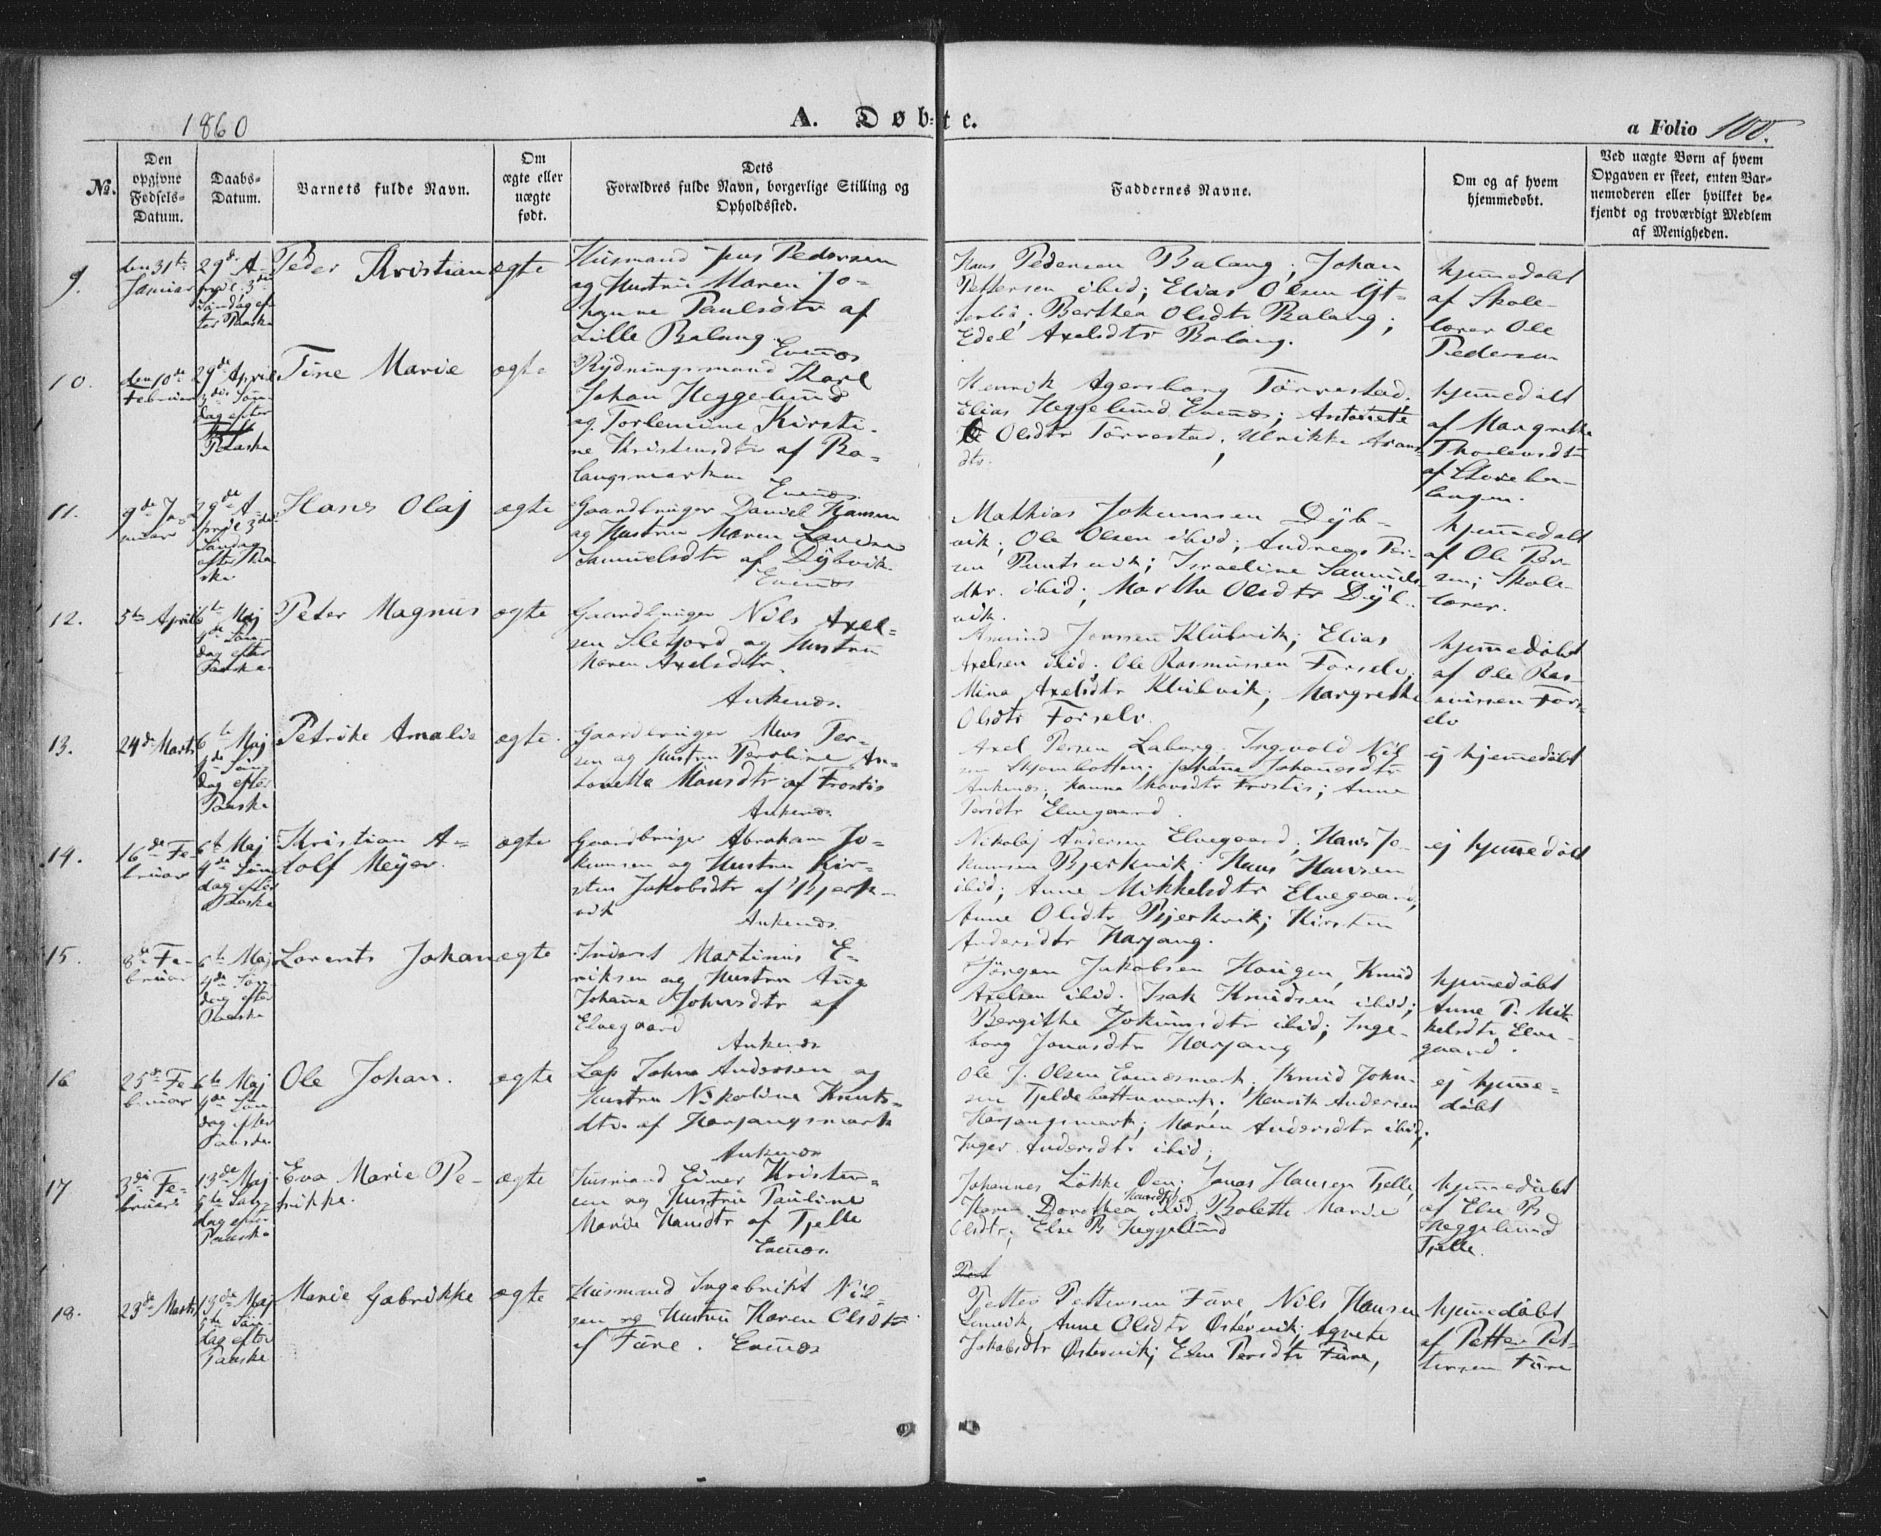 1860
A. Døbte.
a Folio 100.
No.
Den opgivne Fødsels-Datum.
Daabs-Datum.
Barnets fulde Navn.
Om ægte eller uægte født.
Dets Forældres fulde Navn, borgerlige Stilling og Opholdssted.
Faddernes Navne.
Om og af hvem hjemmedøbt.
Ved uægte Børn af hvem Opgaven er skeet, enten Barnemoderen eller hvilket bekjendt og troværdigt Medlem af Menigheden.
9.
den 31te Januar
29de April 3die Søndag efter Paaske
Peder Kristian
ægte
Husmand Jens Pedersen
og Hustru Maren Jo-
hanne Paulsdtr af
Lille Balang.
Evenæs
Hans Pedersen Balang; Johan
Pettersen ibid; Elias Olsen
Berthea Olsdtr Balang;
Edel Axelsdtr Balang.
hjemmedøbt
af Skole-
lærer Ole
Pedersen
10.
den 10de Februar
29de April 3die Søndag efter Paaske
Tine Marie
ægte
Rydningsmand Karl
Johan Heggelund
og Torlemine Kirsti-
ne Kristensdtr af Ba-
langsmarken
Evenæs.
Henrik Agersborg Tørrestad;
Elias Heggelund Evenæs; Antonette
Olsdtr Tørrestad; Ulrikke
dtr.
hjemmedøbt
af Margrethe
af Storeba-
langen.
11.
9de Januar
29de April 3die Søndag efter Paaske
Hans Olaj
ægte
Gaardbruger Daniel Hansen
og Hustru Maren
Samuelsdtr af Dybvik.
Evenæs
Mathias Jokumsen Dyb-
vik; Ole Olsen ibid; Andreas Per-
sen; Israeline Samuels-
dtr. ibid; Martha Olsdtr Dyb-
vik.
hjemmedøbt
af Ole Per-
sen; Skole-
lærer.
12.
5te April
6te Maj 4de Søndag efter Paaske
Peter Magnus
ægte
Gaardbruger Nils Axel-
sen og Hustru
Maren Axelsdtr.
Ankenæs.
Amund Jenssen Klubvik; Elias
Axelsen ibid. Ole Rasmussen Forselv;
Mina Axelsdtr Klubvik; Margrethe
Olsdtr Forselv.
hjemmedøbt
af Ole Ras-
mussen Fors-
elv
13.
24de Marts
6te Maj 4de Søndag efter Paaske
Petrike Amalie
ægte.
Gaardbruger Mons Per-
sen og Hustru Peroline An-
tonetta Monsdtr af
Ankenæs
Axel Persen Laberg. Ingvold Nil-
sen; Johanna Johannesdtr
Ankenæs; Hanna; Anna
Persdtr Elvegaard.
ej hjemmedøbt
14.
16de Februar
6te Maj 4de Søndag efter Paaske
Kristian A-
dolf Meyer.
ægte
Gaardbruger Abraham Jo-
kumsen og Hustru Kir-
sten Jakobsdtr af Bjerk-
vik
Ankenæs.
Nikolaj Andersen Elvegaard; Hans Jo-
kumsen Bjerkvik; Hans Hansen
ibid; Anne Mikkelsdtr Elvegaard;
Anne Olsdtr Bjerkvik; Kirsten
Andersdtr Harjang.
ej hjemmedøbt
15.
8de Februar
6te Maj 4de Søndag efter Paaske
Lorents Johan
ægte
Inderst Martinus E-
riksen og Hustru Ane
Johanna af
Elvegaard
Ankenæs
Jørgen Jakobsen Haugen, Knud
Axelsen ibid. Isak Knudsen ibid;
Bergithe Jokumsdtr ibid; Inge-
borg Jonasdtr Harjang
hjemmedøbt
Anne P. Mik-
kelsdtr Elve-
gaard.
16
25de Februar
6te Maj 4de Søndag efter Paaske
Ole Johan.
ægte
Lap Johan Andersen og
Hustru Nikoline Knuts-
dtr. af Harjangsmark
Ankenæs
Ole J. Olsen Evenæsmark; Knud John-
sen; Henrik Andersen
Harjangsmark; Maren Andersdtr ibid;
Inger Andersdtr ibid;
ej hjemme-
døbt
17
3die Februar
13de Maj 5te Søndag efter Paaske
Eva Marie Pe-
trikke.
ægte
Husmand Einer Kristen-
sen og Hustru Pauline
Marie Hansdtr af Tjelle
Evenæs.
Johannes Løkke Øen; Jonas Hansen Tjelle,
Karen Dorothea Hansdtr ibid; Bolette Marie
Olsdtr; Else B Heggelund
hjemmedøbt
af Else B
Heggelund
Tjelle.
18.
23de Marts
13de Maj 5te Søndag efter Paaske
Marie Gabrikke
ægte
Husmand Ingebrikt Nil-
sen og Hustru Karen Olsdtr
af Fure. Evenæs
Petter Pettersen Fure, Nils Hansen
Lenvik, Anne Olsdtr Østervik; Agnete
Jakobsdtr Østervik; Else Persdtr Fure,
hjemmedøbt
af Petter Pet-
tersen Fure